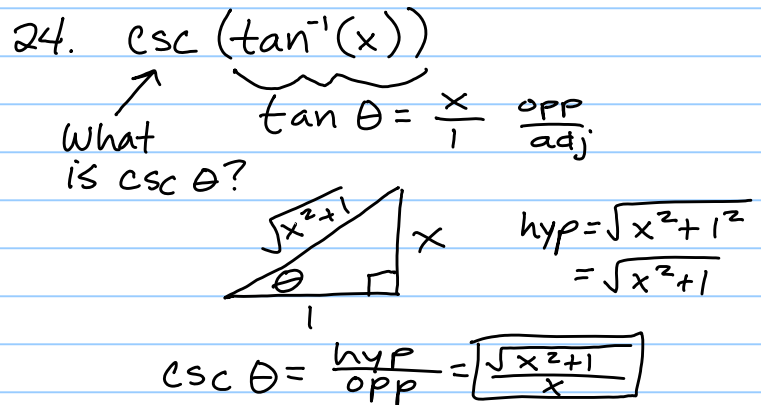 24. csc (tan⁻¹(x))
tan θ = x/1 opp/adj.
What
is csc θ?
√x²+1
x
θ
1
hyp = √x²+1²
= √x²+1
csc θ = hyp/opp = √x²+1/x